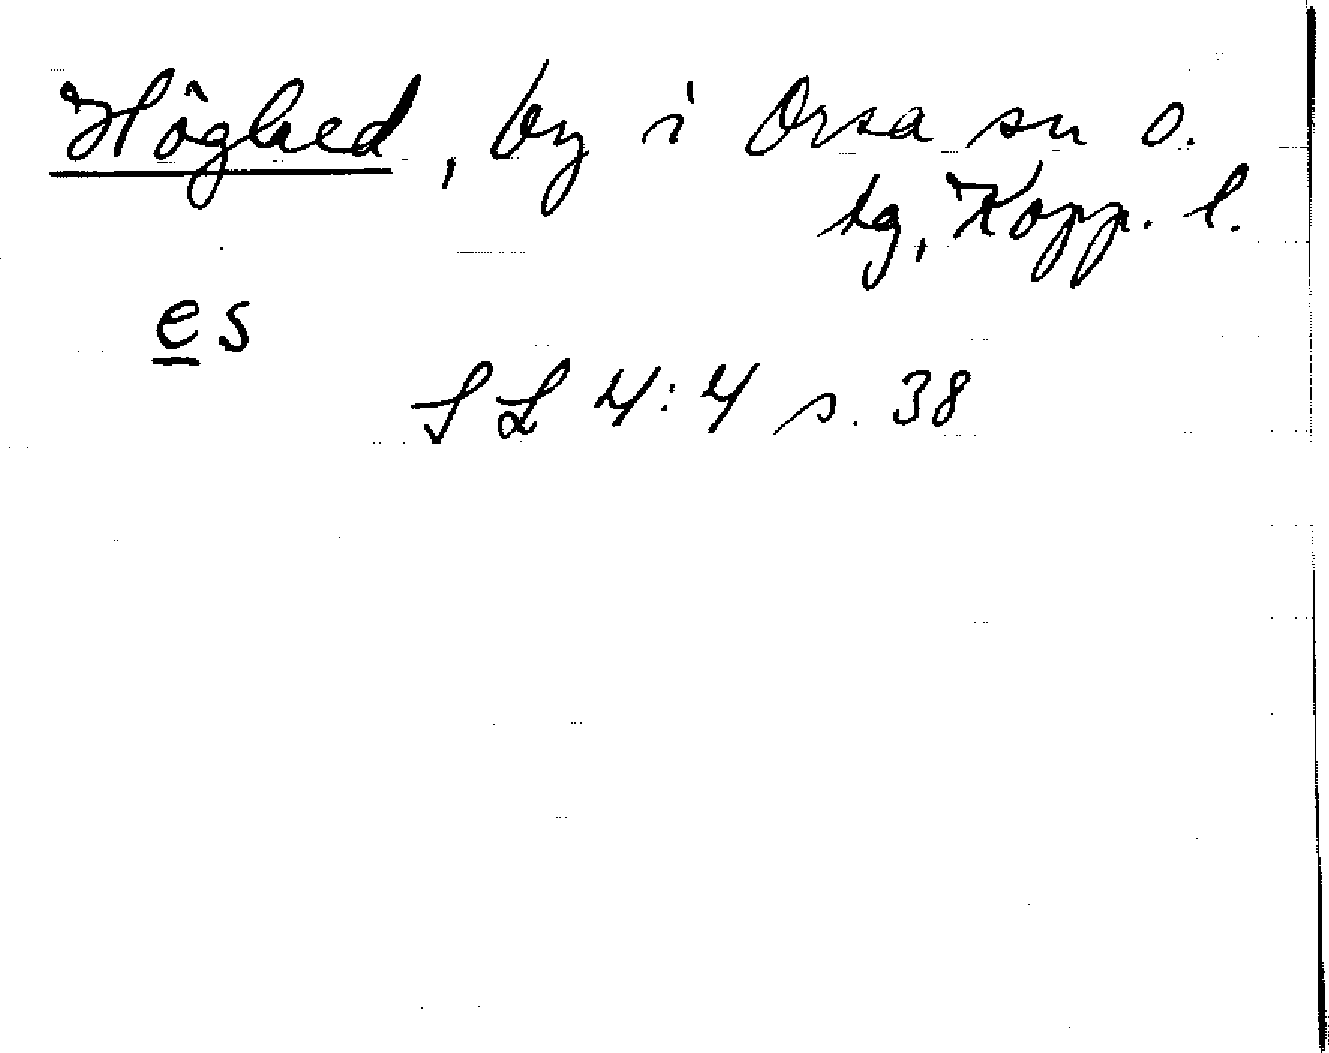 Högbred, by i Orsa sn o.
tg, Kopp. l.
es
SL 4:4 s. 38